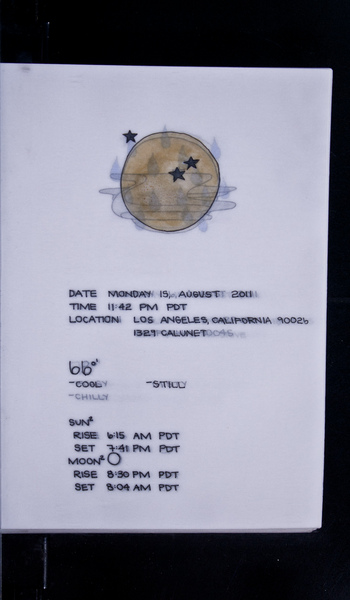 DATE MONDAY 15, AUGUST 2011
TIME 11:42 PM PDT
LOCATION LOS ANGELES, CALIFORNIA 90026
1327 CALUNET
66°
-COOL -STILL
-CHILLY
SUN
RISE 6:15 AM PDT
SET 7:41 PM PDT
MOON
RISE 8:30 PM PDT
SET 8:04 AM PDT